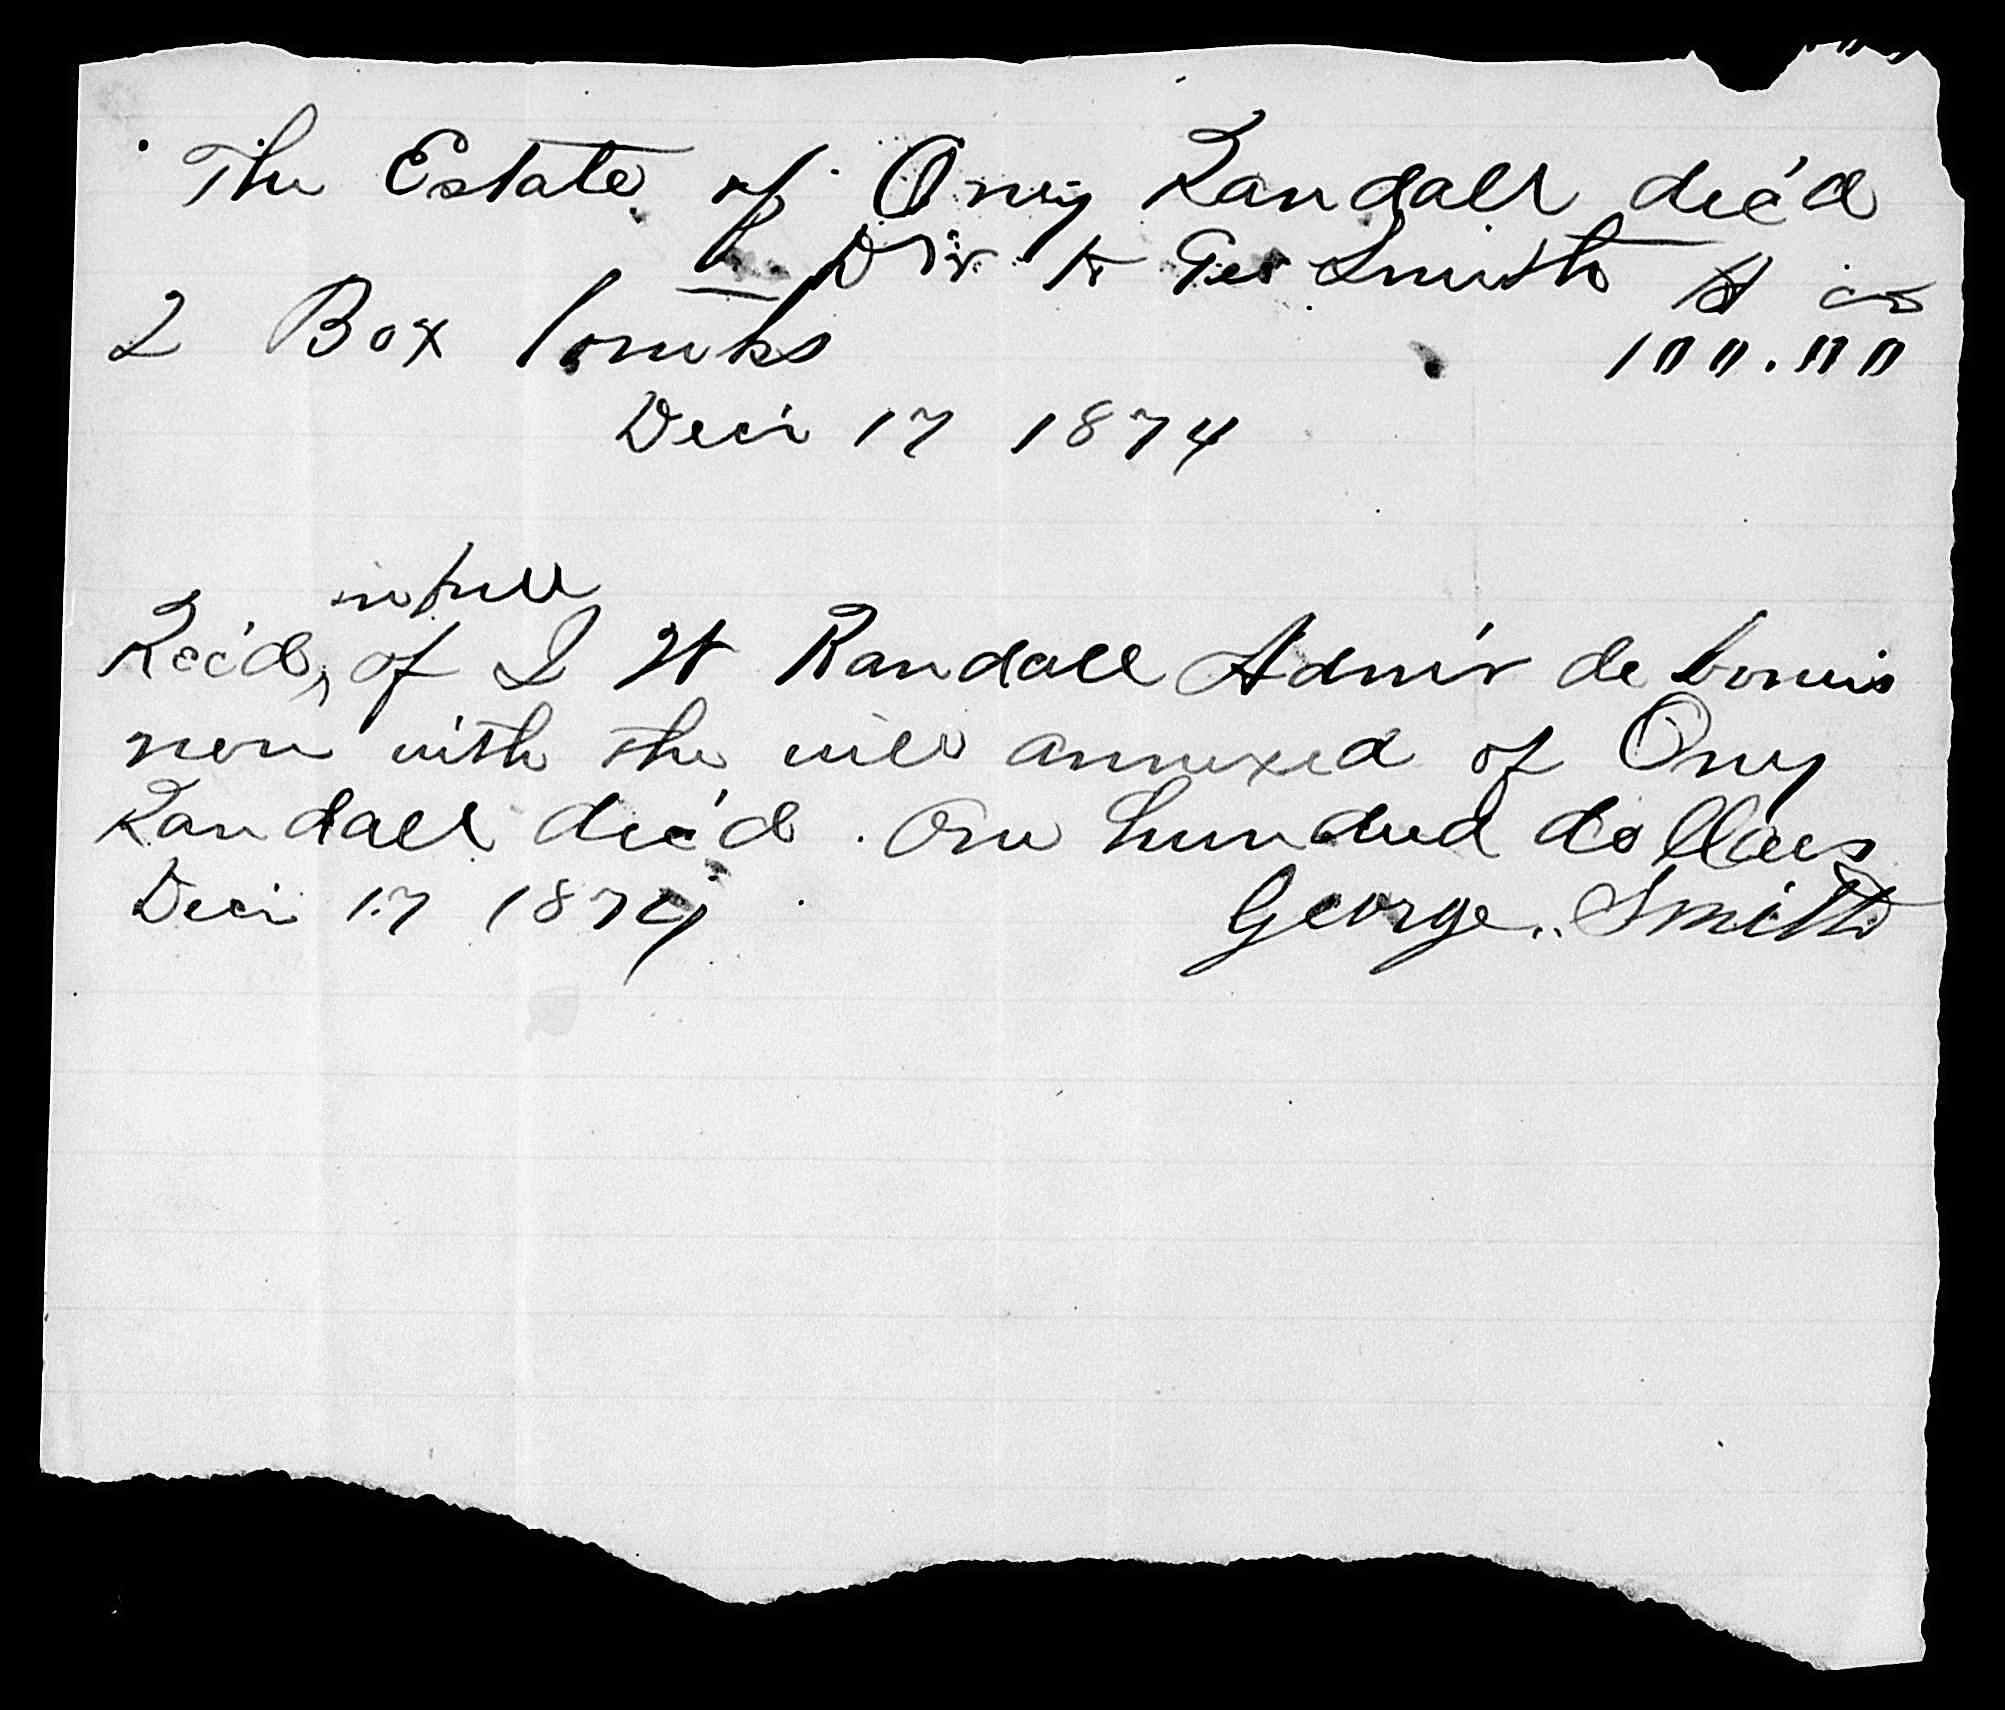 The Estate of Ony Randall dec'd
Dr to Geo Smith $ cs
2 Box Tombs 100.00
Decr 17 1874
in full
Rec'd, of J W Randall Adm'r de bonis
non with the will annexed of Ony
Randall dec'd. One hundred dollars
Decr 17 1874 George Smith